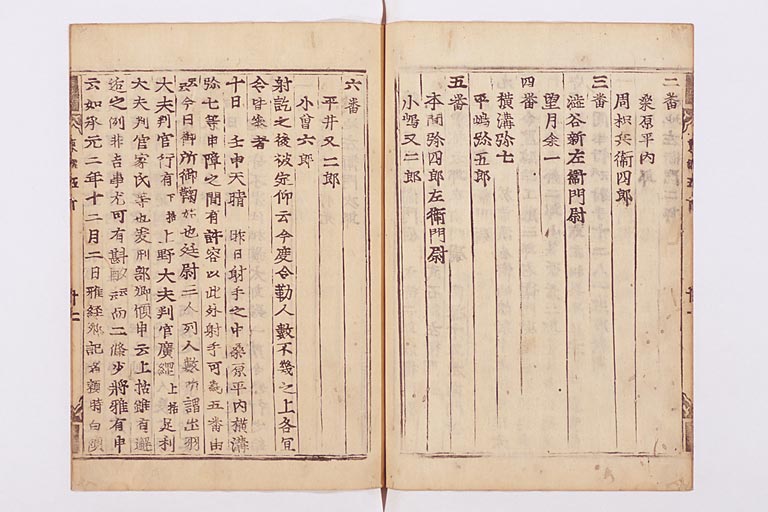 二番
桑原平内
周枳兵衛四郎
三番
澁谷新左衞門尉
望月余一
四番
横溝弥七
平嶋弥五郎
五番
本間弥四郎左衞門尉
小嶋又二郎
六番
平井又二郎
小曾六郎
射訖之後被定仰云今度令勤人數不幾之上各
令 者
十日 壬申天晴 昨日射手之中桑原平内横溝
弥七等申障之間有許容以此外射手可 五番由
今日御所御鞠 也廷尉三人列人數所謂出羽
大夫判官行有下 上野大夫判官廣綱上括足利
大夫判官家氏等也爰刑部卿 申云上括雖有邂
逅之例非吉事尤可有斟酌云云而二條少將雅有申
云如承元二年十二月二日雅經卿記者 時白